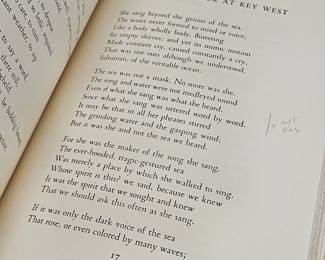 to say a word,
R AT KEY WEST
She sang beyond the genius of the sea.
The water never formed to mind or voice,
Like a body wholly body, fluttering
Its empty sleeves; and yet its mimic motion
Made constant cry, caused constantly a cry,
That was not ours although we understood,
Inhuman, of the veritable ocean.
The sea was not a mask. No more was she.
The song and water were not medleyed sound
Even if what she sang was what she heard,
Since what she sang was uttered word by word.
It may be that in all her phrases stirred
The grinding water and the gasping wind;
But it was she and not the sea we heard.
For she was the maker of the song she sang.
The ever-hooded, tragic-gestured sea
Was merely a place by which she walked to sing.
Whose spirit is this? we said, because we knew
It was the spirit that we sought and knew
That we should ask this often as she sang.
If it was only the dark voice of the sea
That rose, or even colored by many waves;
17